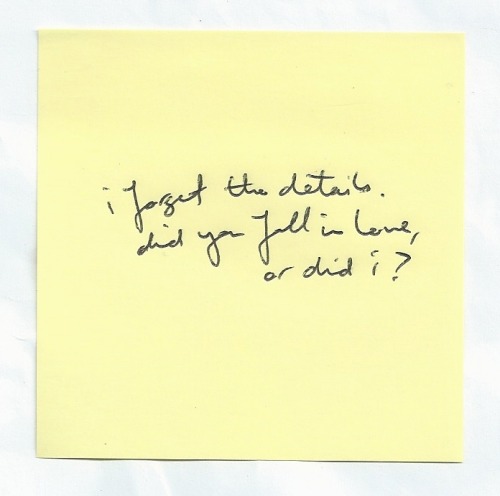 i forget the details.
did you fall in love,
or did i?